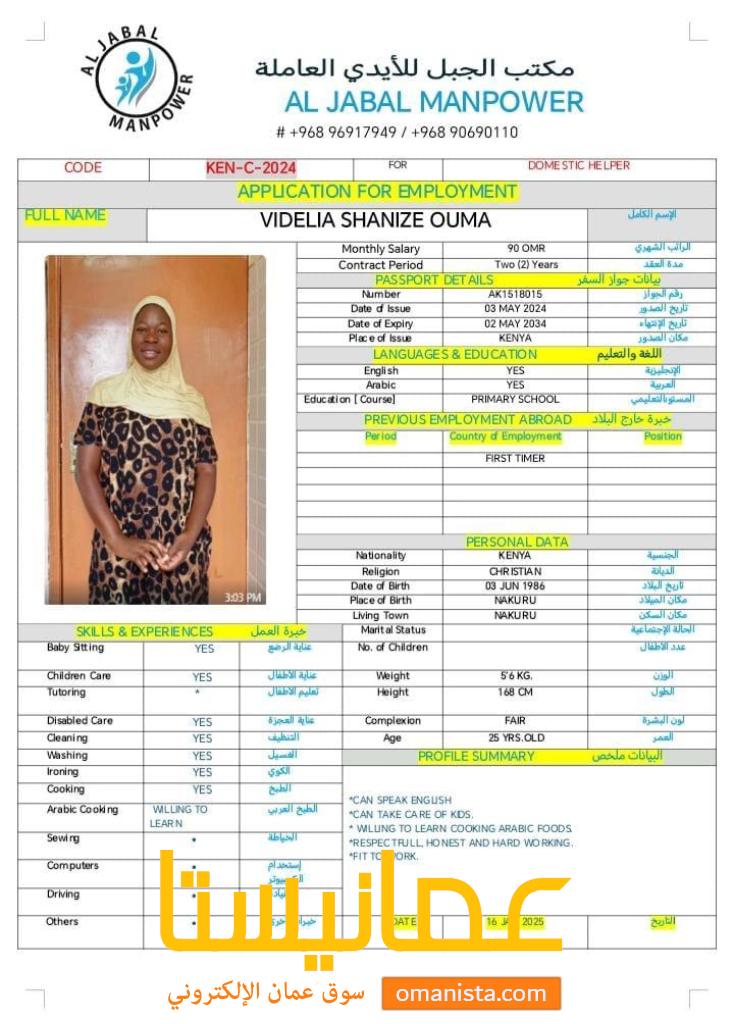 AL JABAL
MANPOWER
مكتب الجبل للأيدي العاملة
AL JABAL MANPOWER
# +968 96917949 / +968 90690110
CODE KEN-C-2024 FOR DOMESTIC HELPER
APPLICATION FOR EMPLOYMENT
FULL NAME VIDELIA SHANIZE OUMA الإسم الكامل
Monthly Salary 90 OMR الراتب الشهري
Contract Period Two (2) Years مدة العقد
PASSPORT DETAILS بيانات جواز السفر
Number AK1518015 رقم الجواز
Date of Issue 03 MAY 2024 تاريخ الصدور
Date of Expiry 02 MAY 2034 تاريخ الإنتهاء
Place of Issue KENYA مكان الصدور
LANGUAGES & EDUCATION اللغة والتعليم
English YES الإنجليزية
Arabic YES العربية
Education [ Course] PRIMARY SCHOOL المستوىالتعليمي
PREVIOUS EMPLOYMENT ABROAD خبرة خارج البلاد
Period Country of Employment Position
FIRST TIMER
PERSONAL DATA
Nationality KENYA الجنسية
Religion CHRISTIAN الديانة
Date of Birth 03 JUN 1986 تاريخ البلاد
Place of Birth NAKURU مكان الميلاد
Living Town NAKURU مكان السكن
Marital Status الحالة الإجتماعية
No. of Children عدد الأطفال
Weight 5'6 KG. الوزن
Height 168 CM الطول
Complexion FAIR لون البشرة
Age 25 YRS.OLD العمر
3:03 PM
SKILLS & EXPERIENCES خبرة العمل
Baby Sitting YES عناية الرضع
Children Care YES عناية الأطفال
Tutoring * تعليم الأطفال
Disabled Care YES عناية العجزة
Cleaning YES التنظيف
Washing YES الغسيل
Ironing YES الكوي
Cooking YES الطبخ
Arabic Cooking WILLING TO LEARN الطبخ العربي
Sewing • الخياطة
Computers • إستخدام
Driving •
Others •
PROFILE SUMMARY البيانات ملخص
*CAN SPEAK ENGLISH
*CAN TAKE CARE OF KIDS.
* WILLING TO LEARN COOKING ARABIC FOODS.
*RESPECTFULL, HONEST AND HARD WORKING.
*FIT TO WORK.
DATE 16 2025 التاريخ
عمانيستا
سوق عمان الإلكتروني
omanista.com